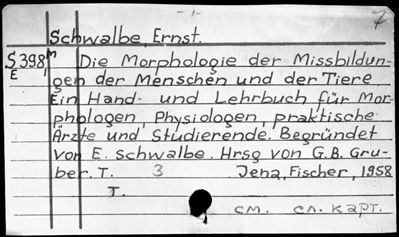 -1- 7
Schwalbe, Ernst.
S398m Die Morphologie der Missbildun-
E 1 gen der Menschen und der Tiere
Ein Hand- und Lehrbuch für Mor-
phologen, Physiologen, praktische
Ärzte und Studierende. Begründet
von E. Schwalbe. Hrsg von G.B. Gru-
ber. T. 3 Jena, Fischer, 1958
T.
см. сл. карт.